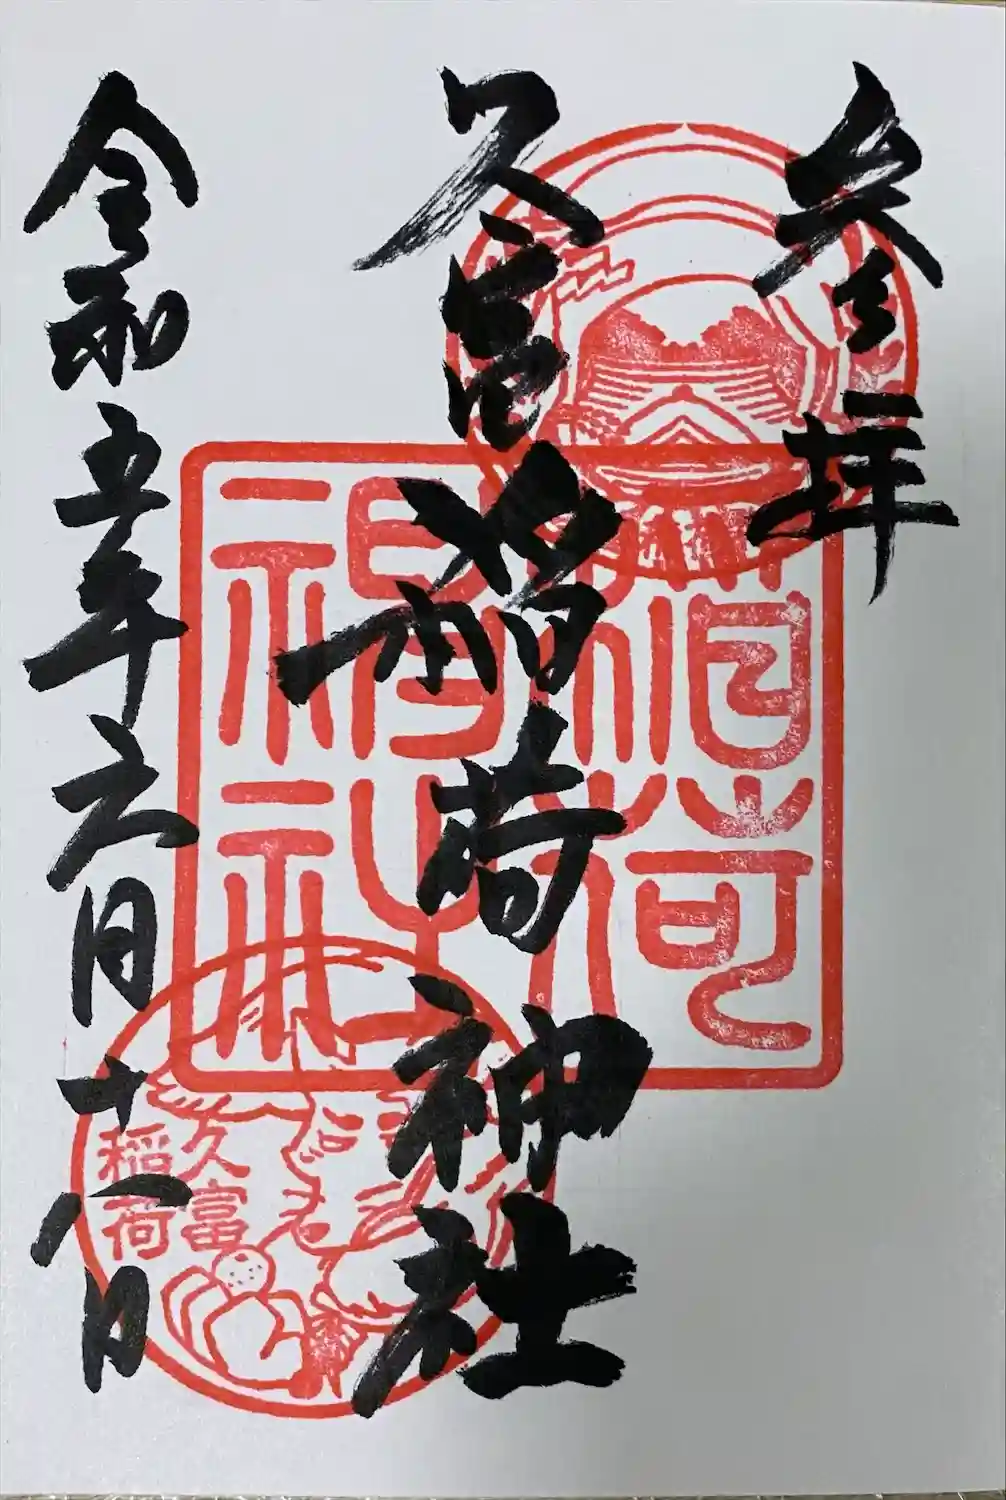 参拝
久富稲荷神社
令和五年六月十八日
稲荷神社
久富
稲荷